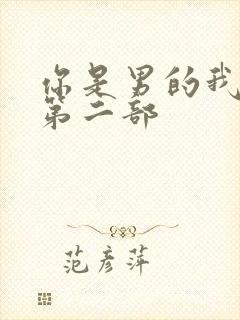 你是男的我
第二部
范彦萍